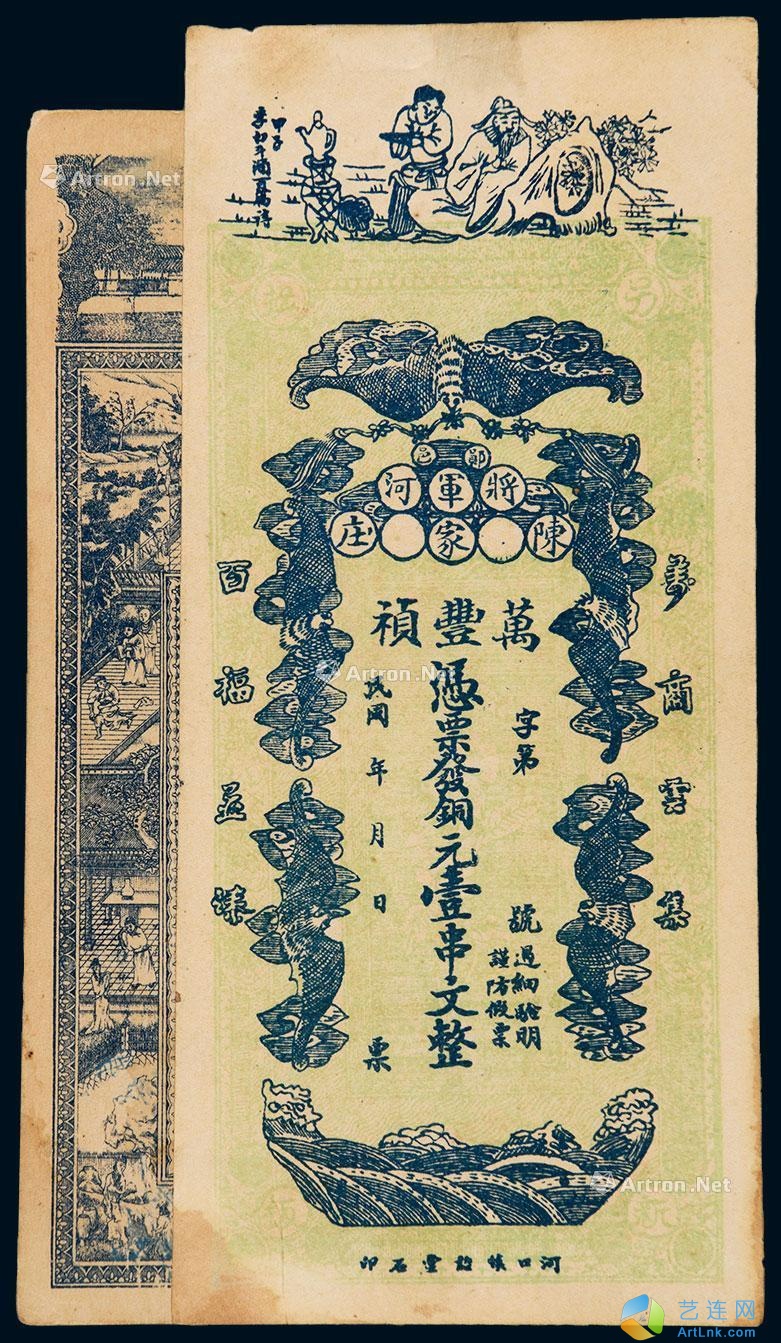 甲子
季幻斗酒百篇詩
另
鄖邑
將軍河
陳家庄
萬豐禎
字第
號
過細驗明
謹防假票
憑票發銅元壹串文整
民國 年 月 日
票
商雲集
百福
臻
河口鎮
堂石印
Artron.Net
Artron.Net
Artron.Net
Artron.Net
艺连网
ArtLnk.com